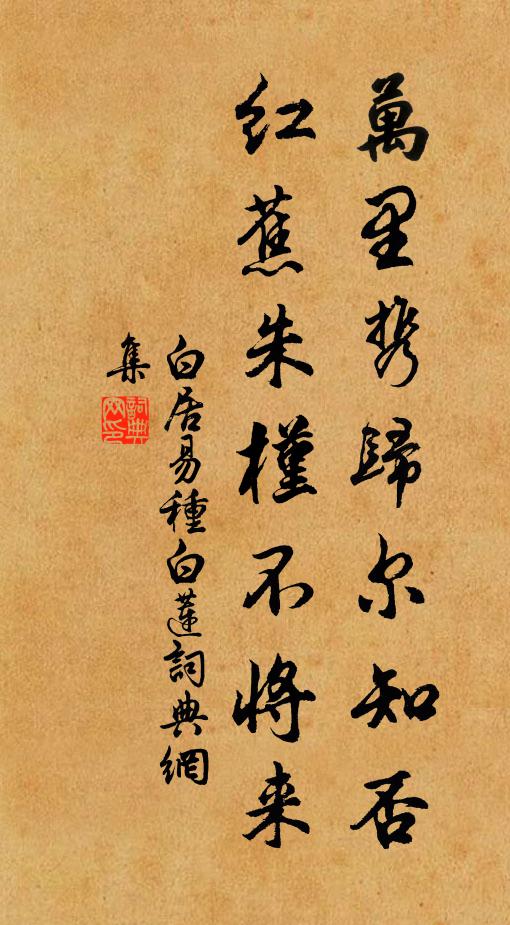 萬里携歸尔知否
紅蕉朱槿不將来
白居易種白蓮詞典網
集
詞典
网印